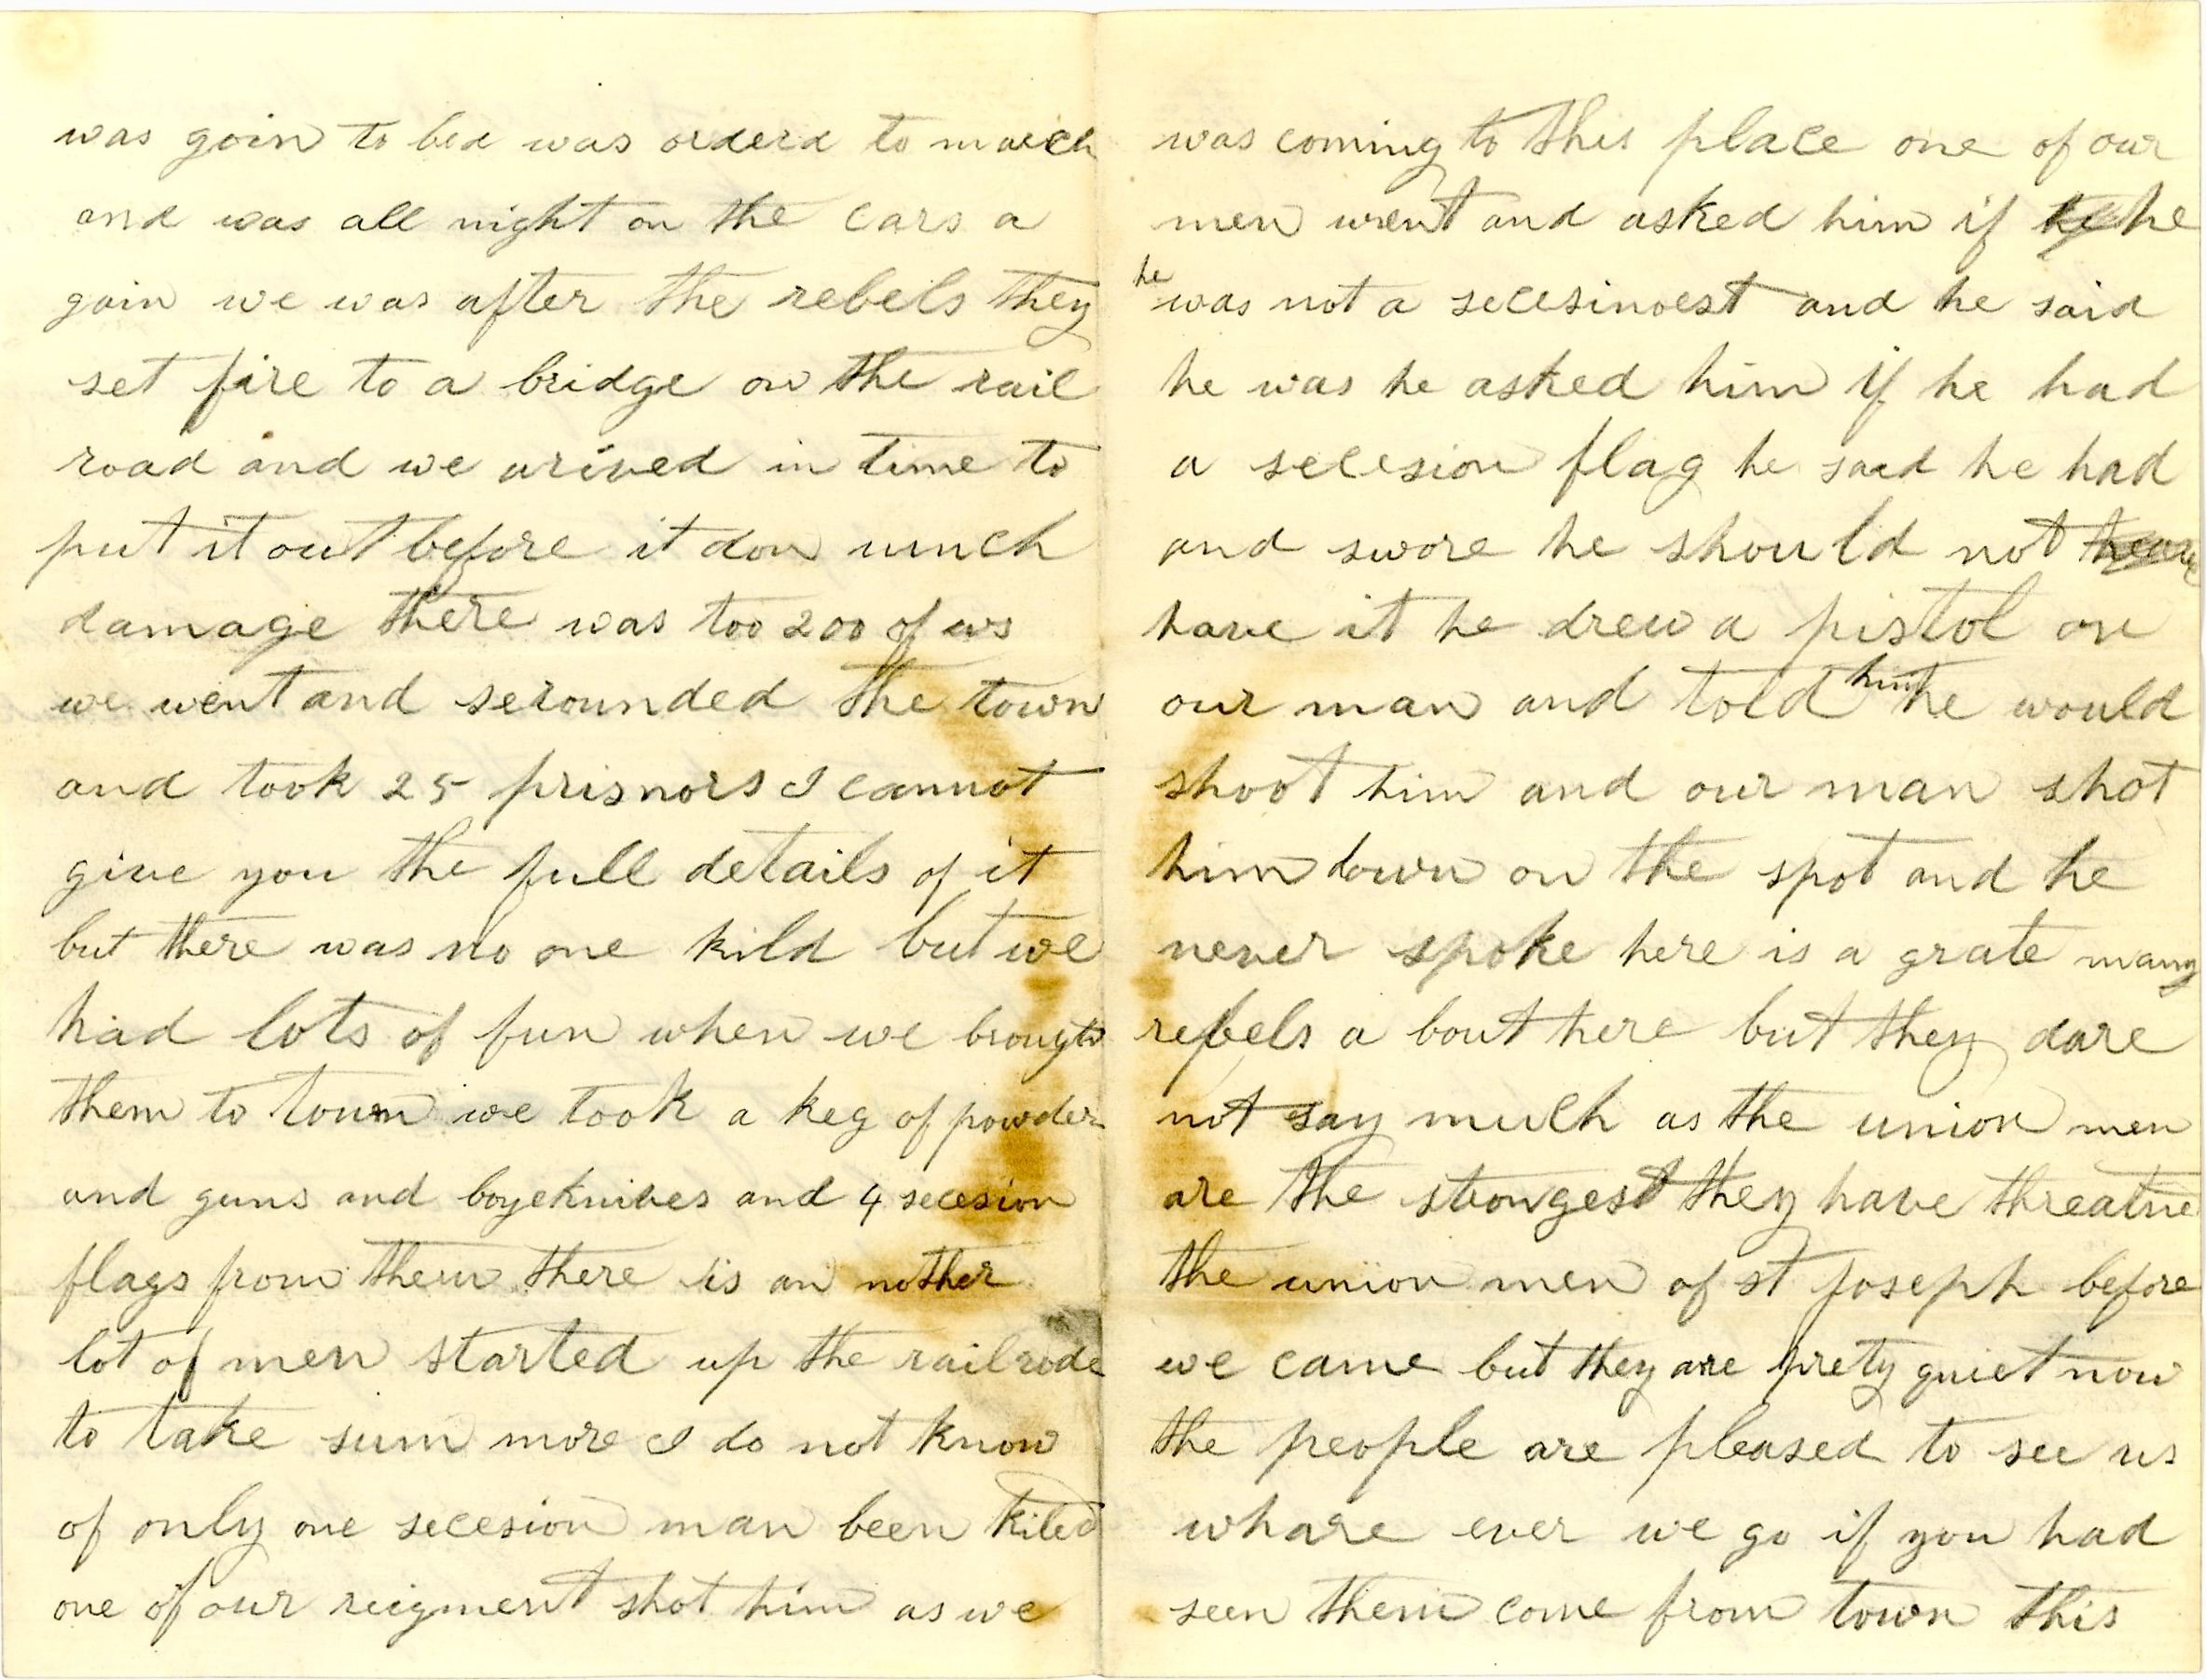 was goin to bed was orderd to march
and was all night on the cars a
gain we was after the rebels they
set fire to a bridge on the rail
road and we arived in time to
put it out before it don much
damage there was too 200 of us
we went and serounded the town
and took 25 prisnors I cannot
give you the full details of it
but there was no one kild but we
had lots of fun when we brought
them to town we took a keg of powder
and guns and boyeknives and 4 secesion
flags from them there is an nother
lot of men started up the railrode
to take sum more I do not know
of only one secesion man been kiled
one of our reigment shot him as we
was coming to this place one of our
men went and asked him if he he
he was not a secesinoest and he said
he was he asked him if he had
a secesion flag he said he had
and swore he should not have
have it he drew a pistol on
our man and told him he would
shoot him and our man shot
him down on the spot and he
never spoke here is a grate many
rebels a bout here but they dare
not say much as the union men
are the strongest they have threatne
the union men of st Joseph before
we came but they are prety quiet now
the people are pleased to see us
whare ever we go if you had
seen them come from town this